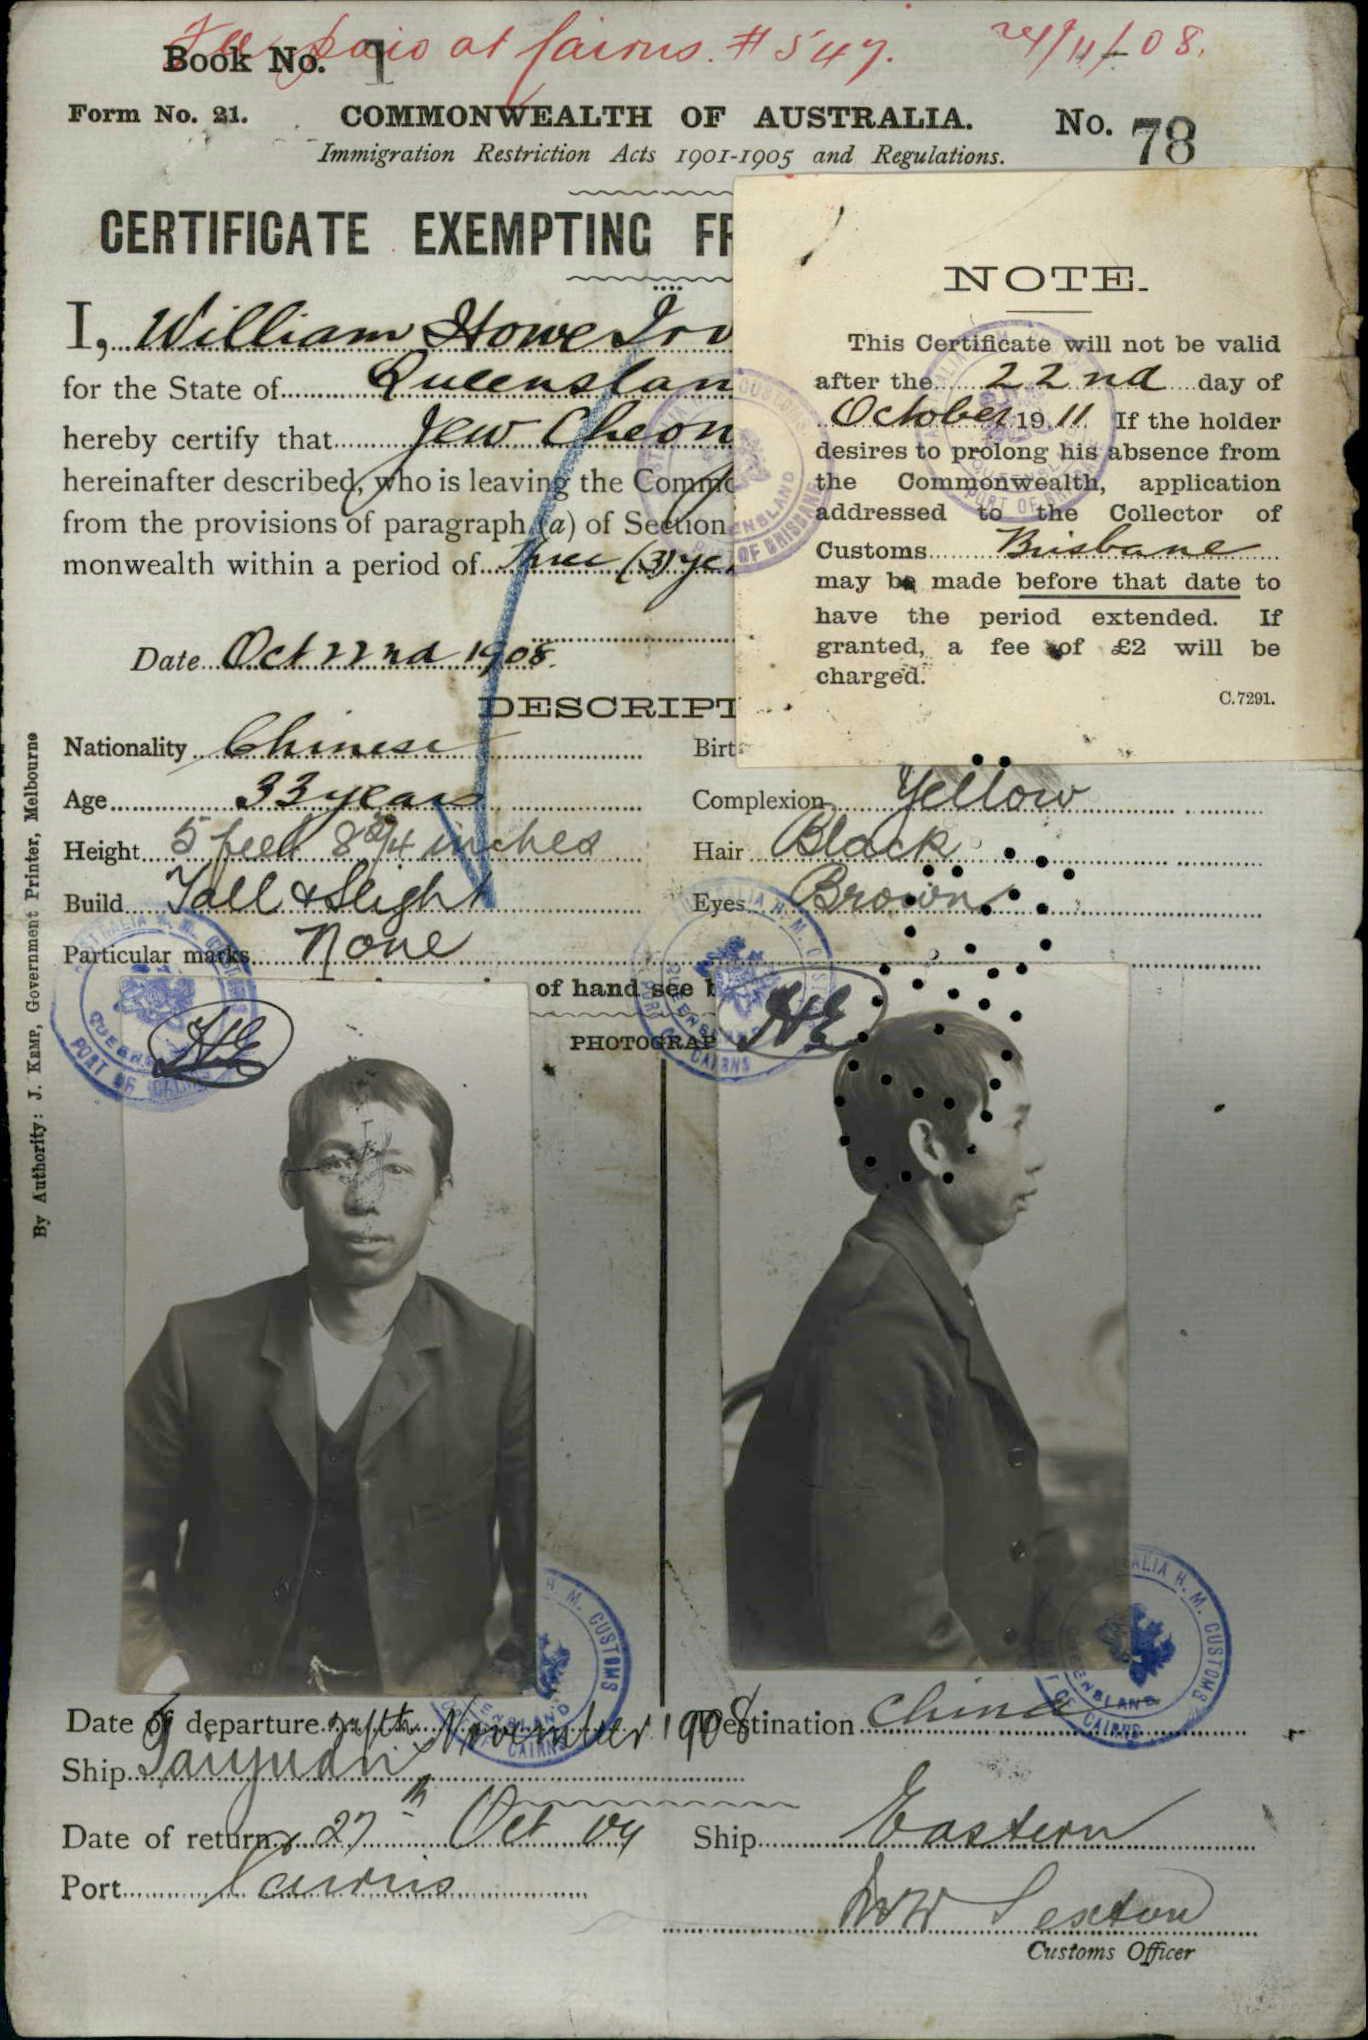 Fee paid at Cairns. # 547. 24/11/08.
Book No. 1
Form No. 21. COMMONWEALTH OF AUSTRALIA. No. 78
Immigration Restriction Acts 1901-1905 and Regulations.
CERTIFICATE EXEMPTING
I, William Howe
for the State of Queenslan
hereby certify that Jew Cheon
hereinafter described, who is leaving the Commo
from the provisions of paragraph (a) of Section
monwealth within a period of three (3) ye
Date Oct 22nd 1908.
NOTE.
This Certificate will not be valid
after the 22nd day of
October 1911. If the holder
desires to prolong his absence from
the Commonwealth, application
addressed to the Collector of
Customs Brisbane
may be made before that date to
have the period extended. If
granted, a fee of £2 will be
charged.
C.7291.
DESCRIPT
Nationality Chinese Birt
Age 33 years Complexion Yellow
Height 5 feet 8 3/4 inches Hair Black
Build Tall & Slight Eyes Brown
Particular marks None
of hand see b
PHOTOGRAP
HE HE
By Authority: J. KEMP, Government Printer, Melbourne
AUSTRALIA H. M. CUSTOMS QUEENSLAND PORT OF BRISBANE
AUSTRALIA H. M. CUSTOMS QUEENSLAND PORT OF CAIRNS
Date of departure 24th November 1908 Destination China
Ship Taiyuan
Date of return 27th Oct 09 Ship Eastern
Port Cairns
Sexton
Customs Officer